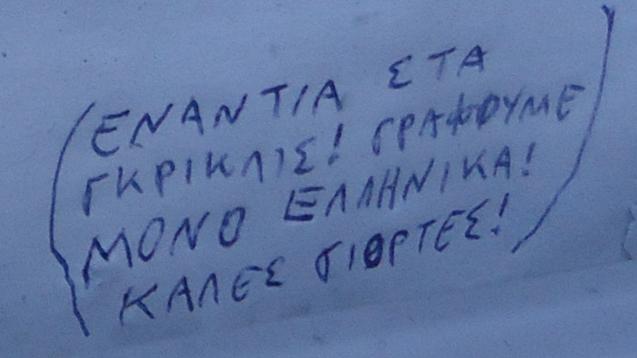 (ΕΝΑΝΤΙΑ ΣΤΑ
ΓΚΡΙΚΛΙΣ! ΓΡΑΦΟΥΜΕ
ΜΟΝΟ ΕΛΛΗΝΙΚΑ!
ΚΑΛΕΣ ΓΙΟΡΤΕΣ!)